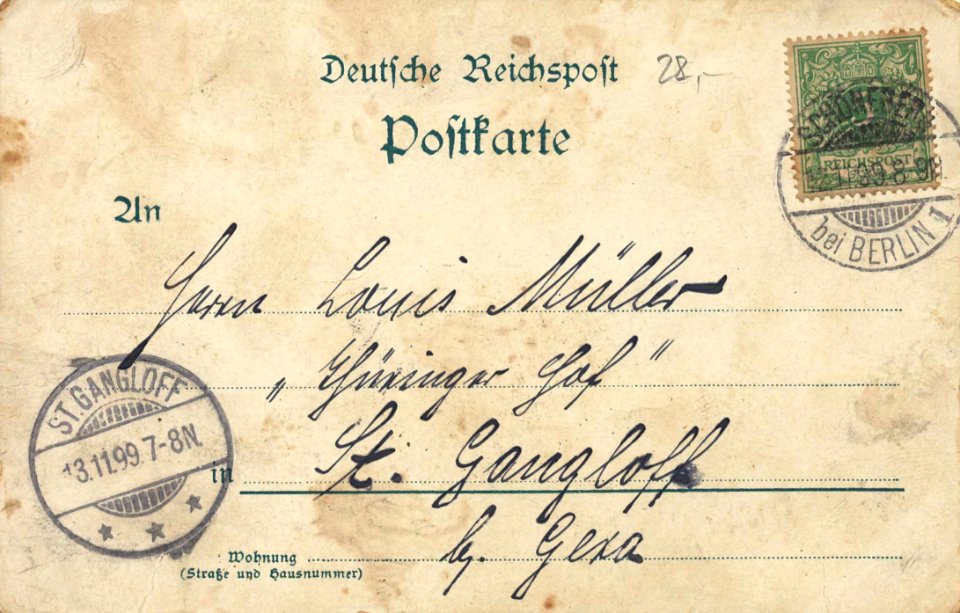 Deutsche Reichspost
28,-
Postkarte
SCHÖNEBERG
REICHSPOST
bei BERLIN 1
An
Herrn Louis Müller
„Thüringer Hof“
ST. GANGLOFF
13.11.99. 7-8N.
in St. Gangloff
b. Gera
Wohnung
(Straße und Hausnummer)